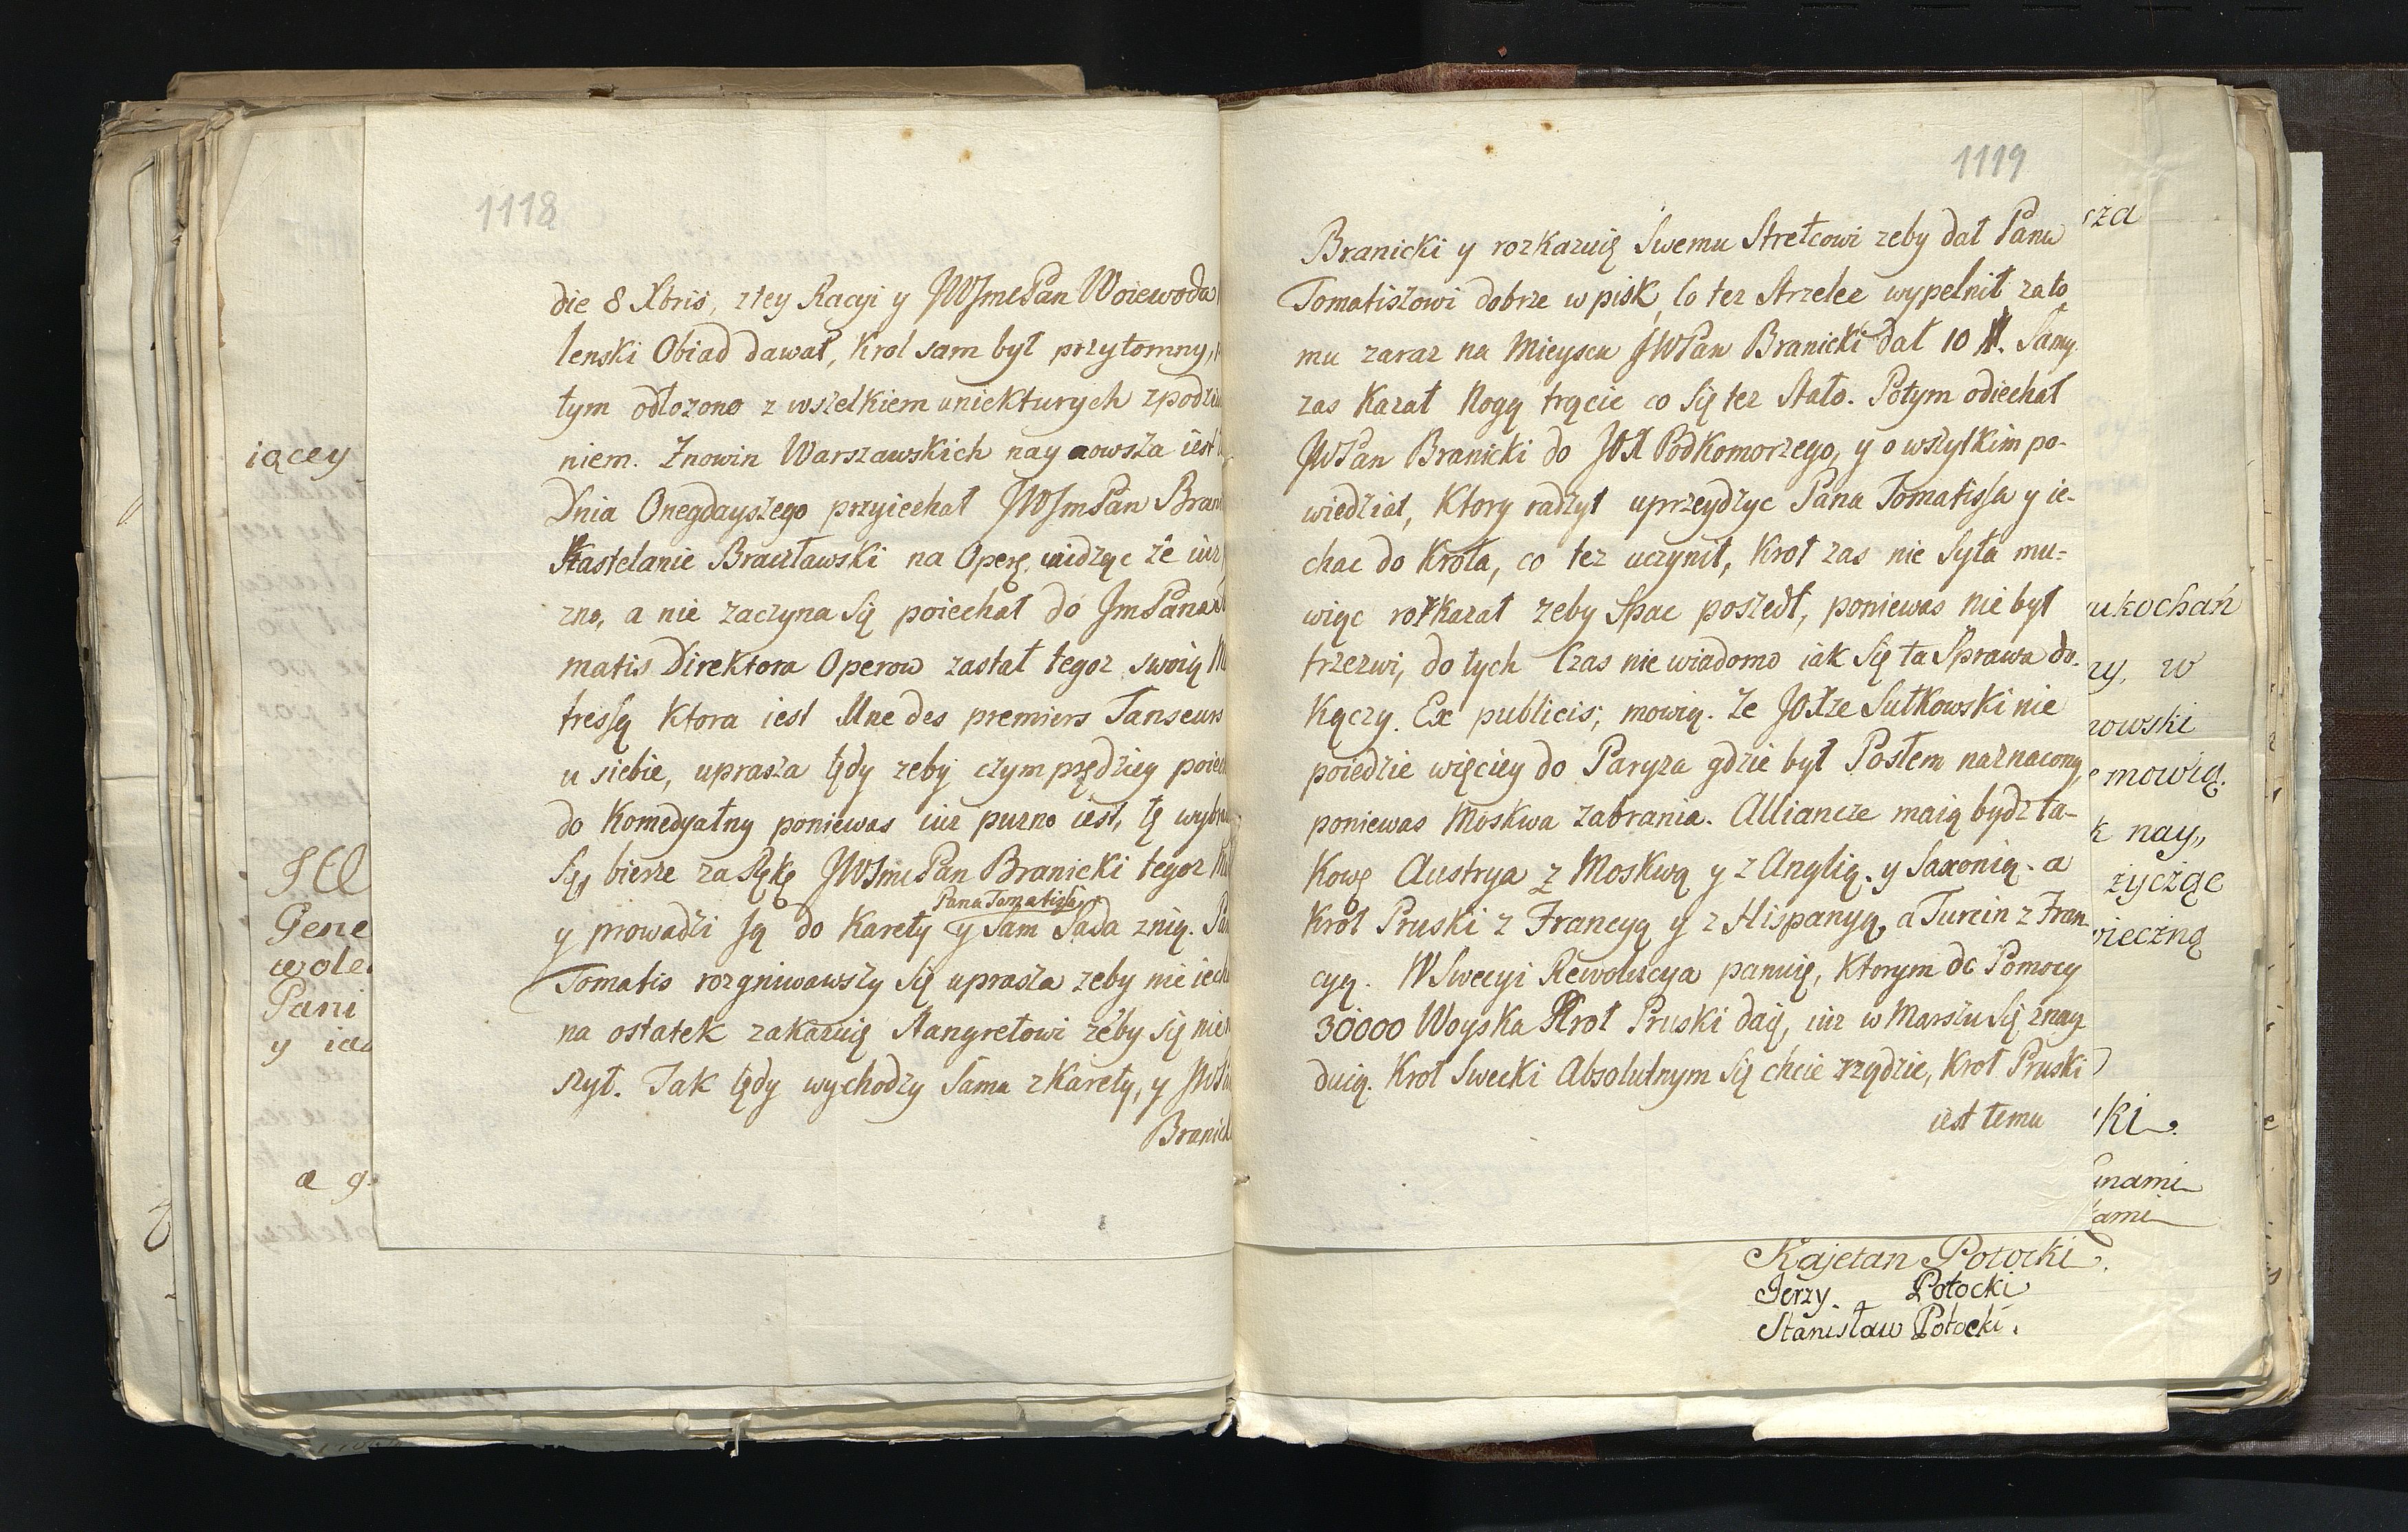 1118
die 8 Xbris, ztey Racyi y JWJmcPan Woiewoda
lenski Obiad dawał, Krol sam był przytomny,
tym odłozono z wszelkiem uniekturych zpodzie
niem. Znowin Warszawskich nay nowsza iest
Dnia Onegdayszego przyiechał JWJmPan Bran
Kastelanic Bracławski na Operę, widząc że iuz
zno, a nie zaczyna Się poiechał do JmPana
matis Direktora Operow zastał tegoz swoią
tressą Ktora iest Mne des premiers Tanseurs
u siebie, uprasza tędy zeby czym prędziey poiec
do Komedyalny poniewas iuz puzno iest, tę wybra
Się, bierze za Rękę JWJmcPan Branicki tegoz
y prowadzi Ją do Karety Pana Tomatissa y Sam Sada znią.
Tomatis rozgniwawszy Się uprasza zeby nie iech
na ostatek zakazuię Stangretowi żeby się nie
szył. Tak tędy wychodzy Sama z Karety, y
Branick
1119
Branicki y rozkazuię Swemu Strelcowi zeby dał Panu
Tomatiszowi dobrze w pisk, Co tez Strzelec wypełnił zato
mu zaraz na Mieyscu JWPan Branicki dał 10 #. Samy
zas Kazał Nogą trącic co Się tez Stało. Potym odiechał
JWPan Branicki do JOX Podkomorzego, y o wszytkim po-
wiedział, Ktory radzył uprzeydzyc Pana Tomatissa y ie-
chac do Krola, co tez uczynił, Krol zas nie Syła mu-
więc rozkazał zeby Spac poszedł, poniewas nie był
trzezwi, do tych Czas nie wiadomo iak Się ta Sprawa do-
Kączy. Ex publicis; mowią. Ze JOXze Sułkowski nie
poiedzie więciey do Paryza gdzie był Posłem naznacony,
poniewas Moskwa zabrania. Alliancze maią bydz ta-
Kowę Austrya z Moskwą y z Anglią. y Saxonią. a
Krol Pruski z Francyą y z Hispanyą, a Turcin z Fran
cyą. W Swecyi Rewolucya panuię, Ktorym do Pomocy
30000 Woyska Krol Pruski daię, iuz w Marszu Się znay
duią. Krol Swecki Absolutnym Się chcie rządzic, Krol Pruski
iest temu
iącey
Gene
Pani
a
sza
ukochań
w
nowski
mowią.
nay,,
życząc
wieczną
Kajetan Potocki.
Jerzy. Potocki
Stanisław Potocki.